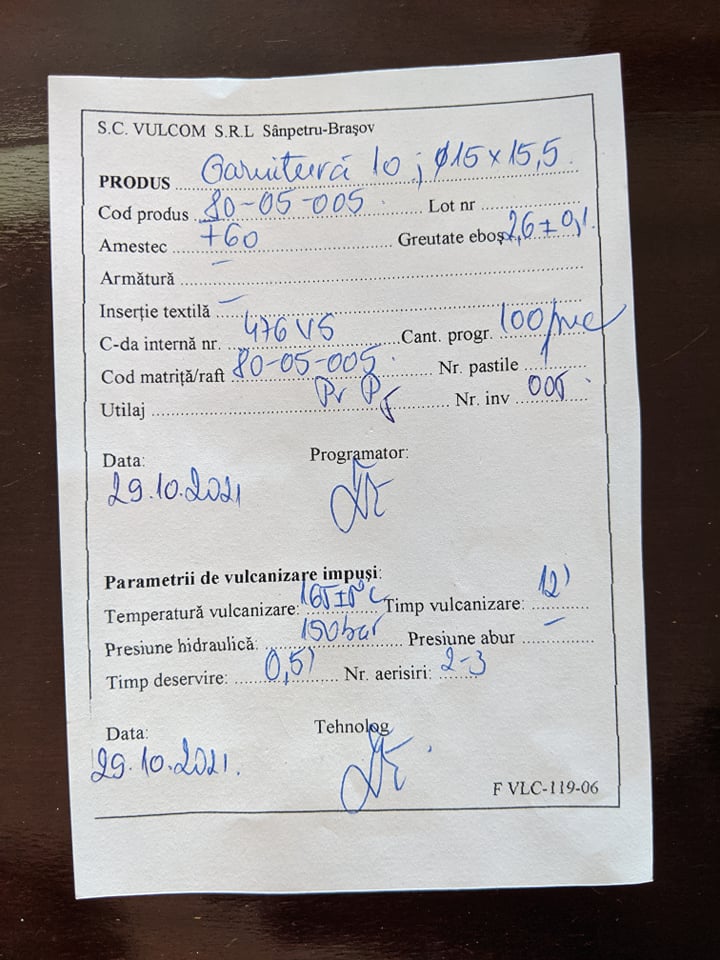 S.C. VULCOM S.R.L Sânpetru-Braşov
PRODUS Garnitură 10 ; ϕ15 x 15,5
Cod produs 80-05-005 Lot nr
Amestec +60 Greutate eboş 2,6 ± 0,1
Armătură –
Inserţie textilă –
C-da internă nr. 476 VS Cant. progr. 100
Cod matriţă/raft 80-05-005 Nr. pastile 1
Utilaj Pr P Nr. inv 005
Data: Programator:
29.10.2021
Parametrii de vulcanizare impuşi:
Temperatură vulcanizare: Timp vulcanizare: 12'
Presiune hidraulică: 150bar Presiune abur –
Timp deservire: 0,5' Nr. aerisiri: 2-3
Data: Tehnolog
29.10.2021.
F VLC-119-06